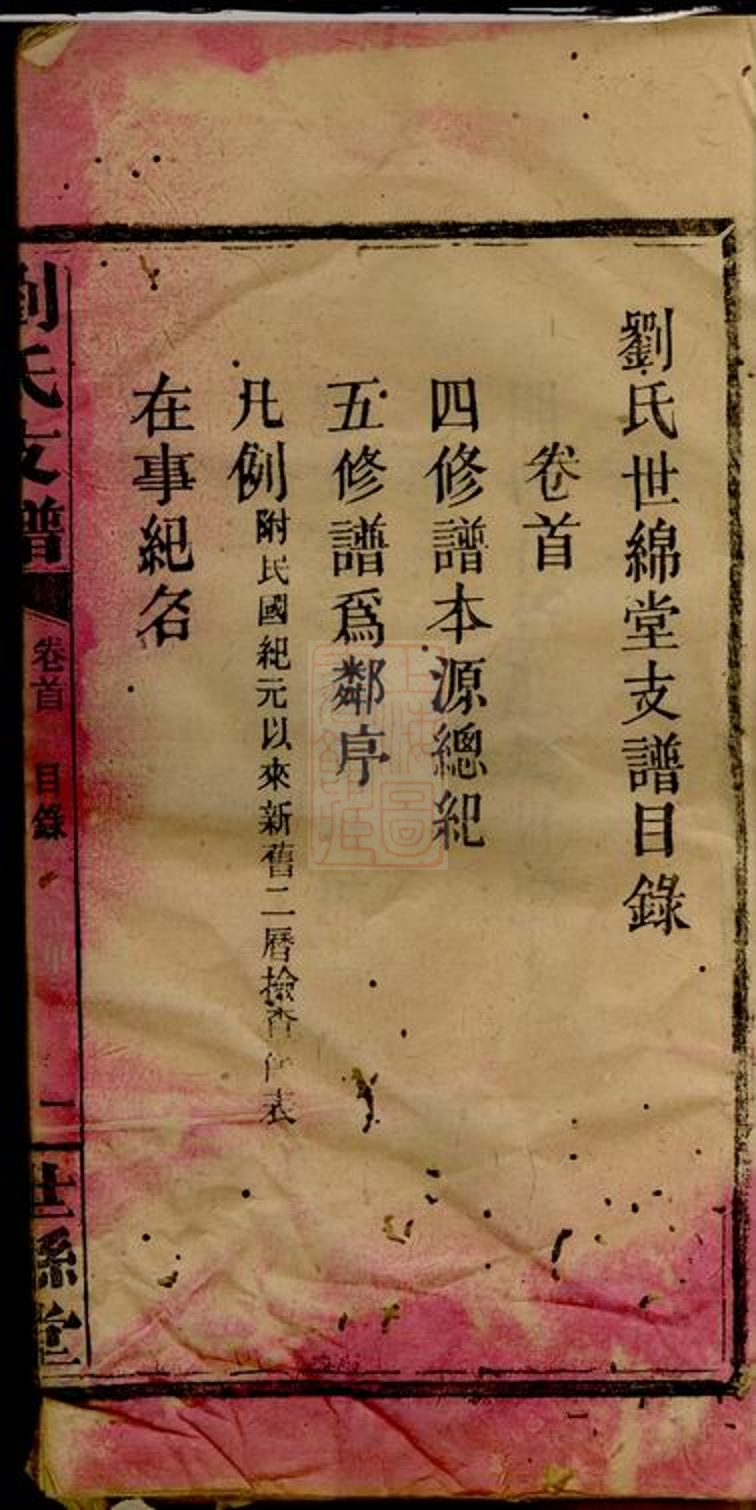 劉氏世綿堂支譜目錄
卷首
四修譜本源總紀
五修譜爲鄰序
凡例附民國紀元以來新舊二曆檢查 表
在事紀名
劉氏支譜 卷首 目錄 一 世綿堂